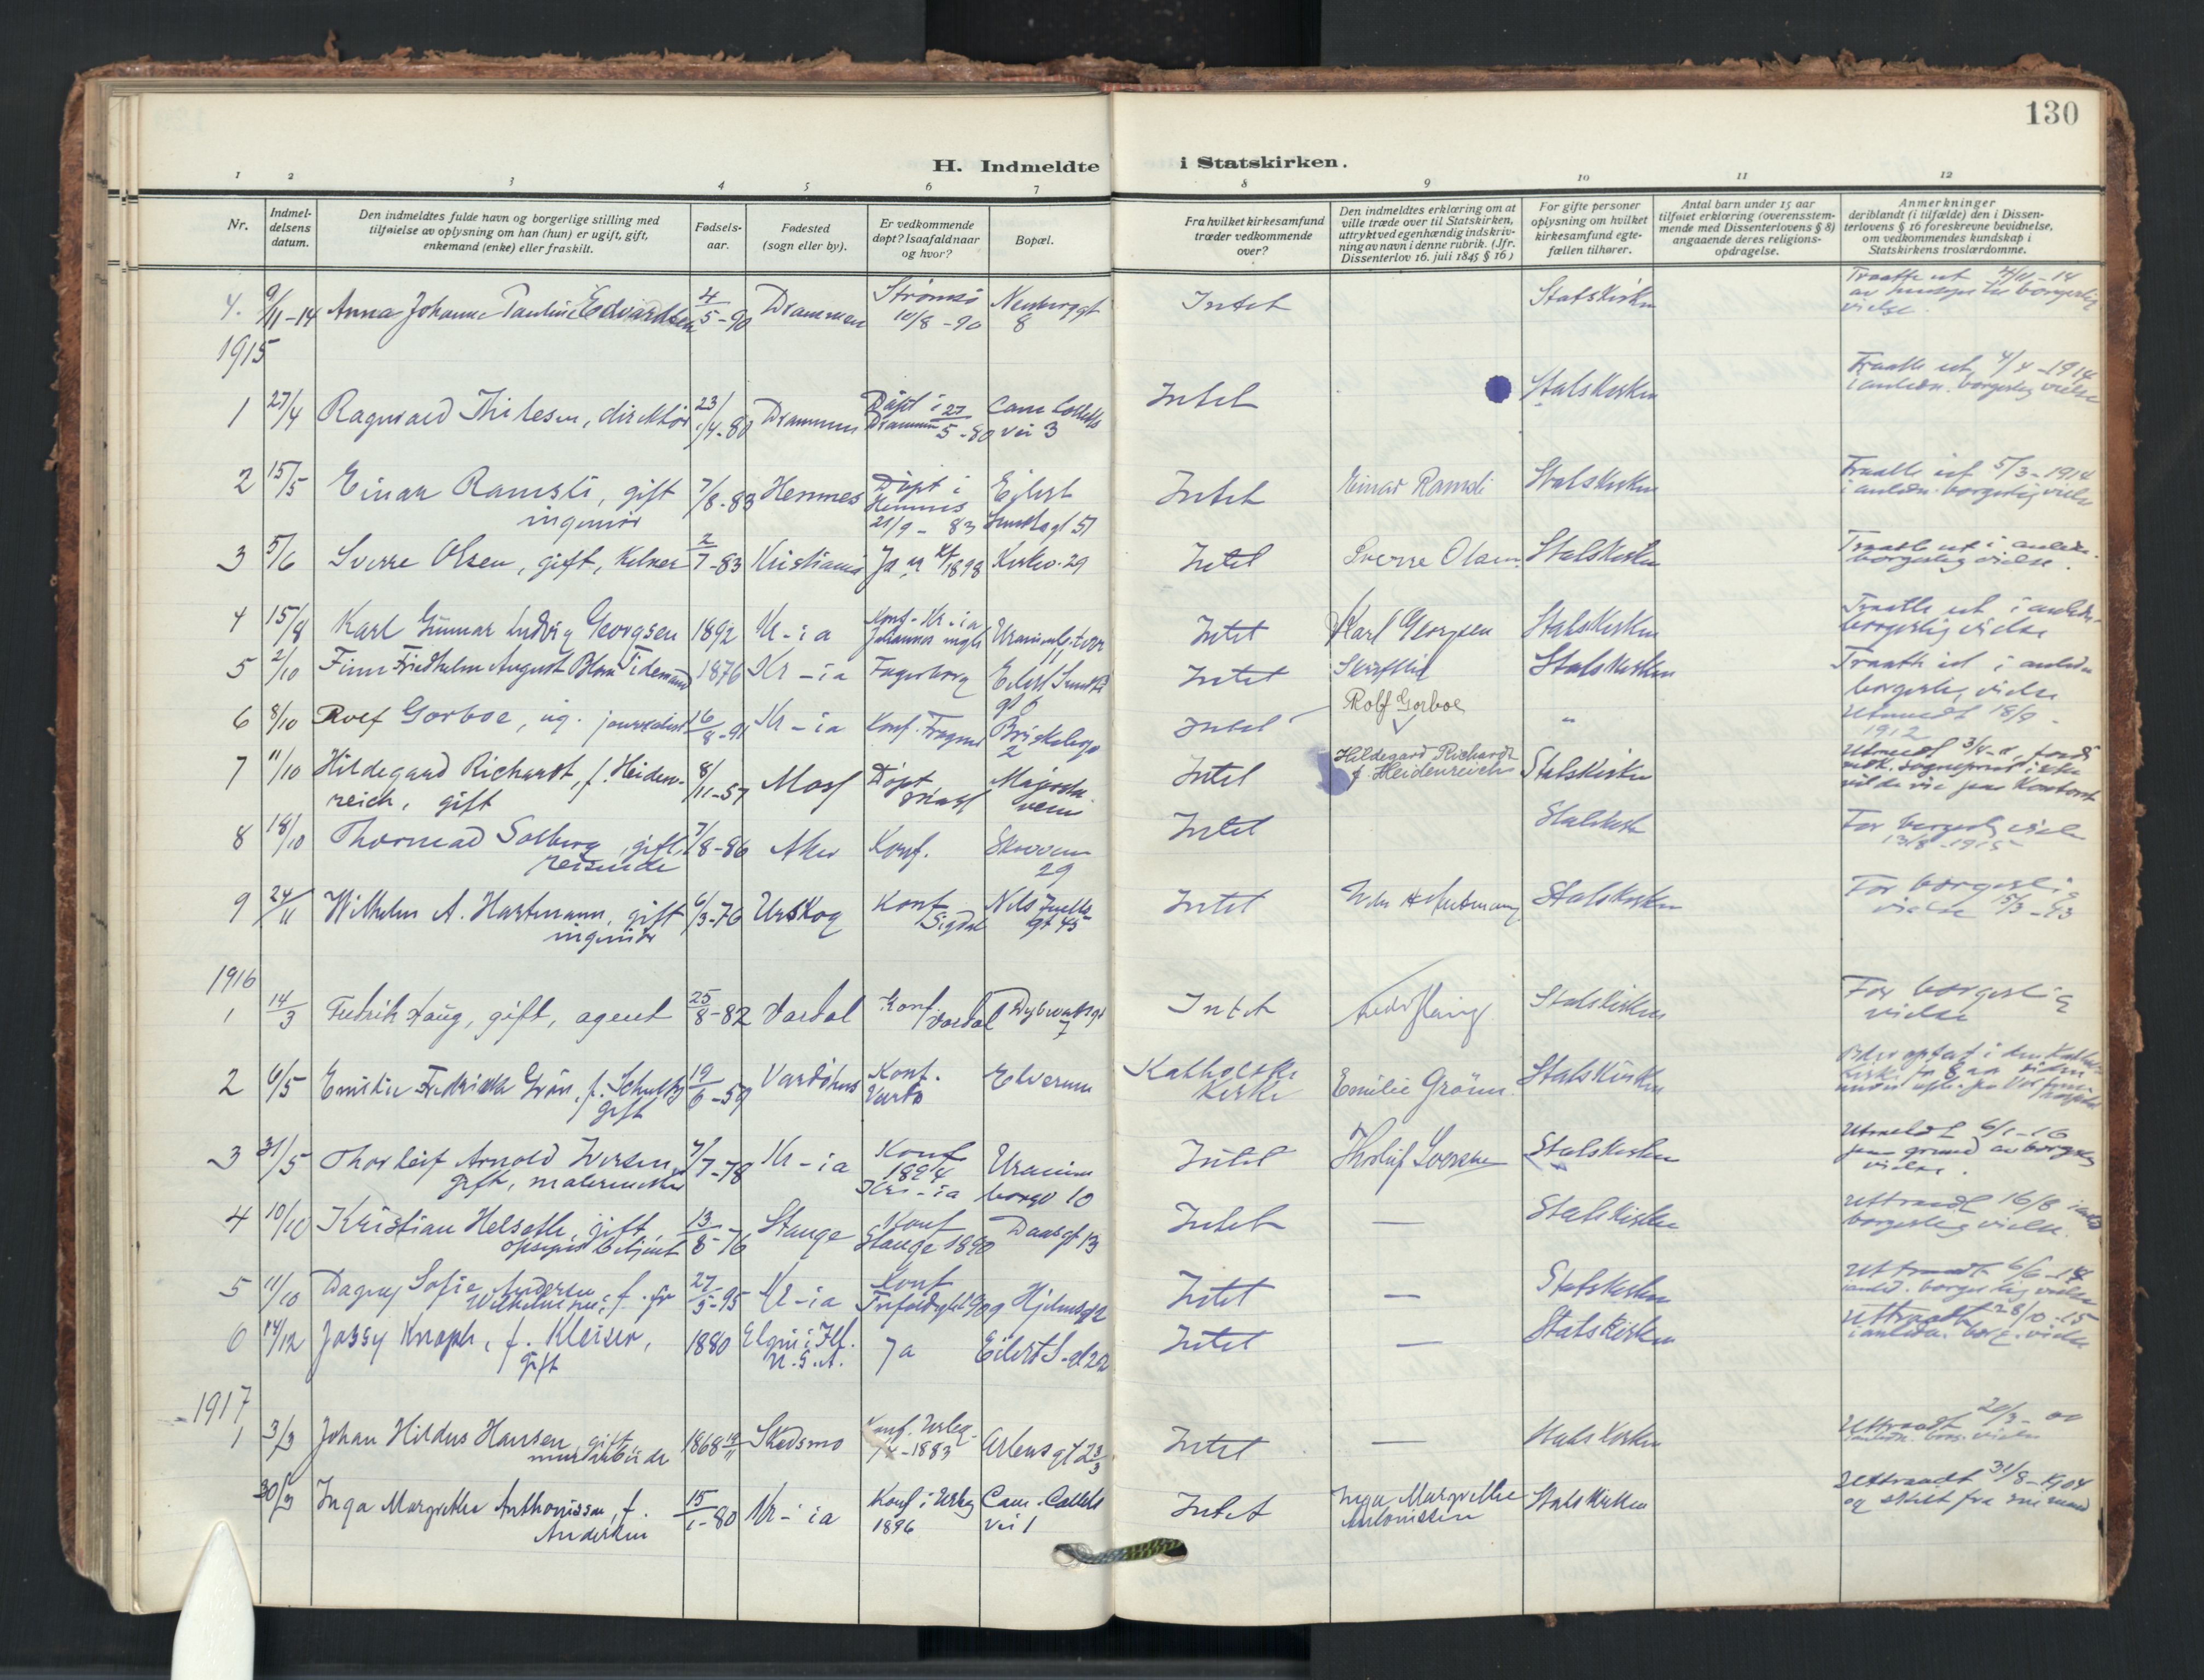 130
H. Indmeldte i Statskirken.
1 2 3 4 5 6 7 8 9 10 11 12
Nr.
Indmel-
delsens
datum.
Den indmeldtes fulde navn og borgerlige stilling med
tilføielse av oplysning om han (hun) er ugift, gift,
enkemand (enke) eller fraskilt.
Fødsels-
aar.
Fødested
(sogn eller by).
Er vedkommende
døpt? Isaafald naar
og hvor?
Bopæl.
Fra hvilket kirkesamfund
træder vedkommende
over?
Den indmeldtes erklæring om at
ville træde over til Statskirken,
uttrykt ved egenhændig indskriv-
ning av navn i denne rubrik. (Jfr.
Dissenterlov 16. juli 1845 § 16)
For gifte personer
oplysning om hvilket
kirkesamfund egte-
fællen tilhører.
Antal barn under 15 aar
tilføiet erklæring (overensstem-
mende med Dissenterlovens § 8)
angaaende deres religions-
opdragelse.
Anmerkninger
deriblandt (i tilfælde) den i Dissen-
terlovens § 16 foreskrevne bevidnelse,
om vedkommendes kundskap i
Statskirkens troslærdomme.
4. 9/11-14 Anna Johanne Pauline Edvardsen 4/5-90 Drammen Strømsø 10/8-90 8 Intet Statskirken
Traatte ut 14 av borgerlig
vielse.
1915
1 27/4 Ragnvald Thilesen, direktør 23/4-80 Drammen Døpt i Drammen 27/5-80 Cam. Colletts vei 3 Intet Statskirken
Traatte ut 4/4-1914
i anledn. borgerlig vielse
2 15/5 Einar Ramsli, gift
ingeniør
7/8-83 Hemnes Døpt i Hemnes 21/9-83 Eilert Sundtsgt 51 Intet Einar Ramsli Statskirken
Traatte ut 5/3-1914
i anledn. borgerlig vielse
3 5/6 Sverre Olsen, gift, kelner 2/7-83 Kristiania Ja 1898 Kirkev. 29 Intet Sverre Olsen Statskirken
Traatte ut i anledn.
borgerlig vielse.
4 15/8 Karl Gunnar Ludvig Georgsen 1892 Kr-ia Konf. Kr-ia Johannes Intet Karl Georgsen Statskirken
Traatte ut i anledn.
borgerlig vielse
5 2/10 Finn Friedhelm August Blom Tidemand 1876 Kr-ia Fagerborg Eilert Sundts gt 6 Intet Skriftlig Statskirken
Traatte ut i anledn
borgerlig vielse
6 8/10 Rolf Gorboe, ug. journalist 16/8-91 Kr-ia Konf. Briskeby 2 Intet Rolf Gorboe "
Utmeldt 18/9-
1912
7 11/10 Hildegard Richardt, f. Heiden-
reich, gift
8/11-57 Moss Døpt Moss Majorstu veien Intet Hildegard Richardt
f. Heidenreich
Statskirken
Utmeldt
sogneprest ikke
vilde vie paa kontoret
8 18/10 Thormod Solberg, gift,
reisende
7/8-86 Aker Konf. 29 Intet Statskirken
For borgerlig vielse
13/8-1915
9 24/11 Wilhelm A. Hartmann, gift
ingeniør
6/3-76 Urskog Konf Sigdal Nils Juels gt 45 Intet Statskirken
For borgerlig
vielse 15/3-
1916
1 14/3 Fredrik Haug, gift, agent 25/8-82 Vardal Konf. Vardal Dybwadsgt 7 Intet Fredr Haug Statskirken
For borgerlig
vielse
2 6/5 Emilie Fredrikke Grön, f. Schultz
gift
19/6-59 Vardøhus Konf. Vardø Elverum Katholske
kirke
Emilie Grönn Statskirken
Blev optat i den Kathol.
Kirke for 8 aar siden
3 31/5 Thorleif Arnold Iversen
gift, malermester
7/7-78 Kr-ia Konf 1894 Kr-ia Uranien borgv 10 Intet Thorleif Iversen Statskirken
Utmeldt 6/1-16
paa grund av borgerlig
vielse.
4 10/10 Kristian Helseth, gift,
betjent
13/8-76 Stange Konf Stange 1890 Daasgt 13 Intet — Statskirken
Uttraadt 16/8
borgerlig vielse.
5 11/10 Dagny Sofie Andersen
Wilhelmine
27/5-95 Kr-ia Konf 1909 Hjelmsgt 2 Intet — Statskirken
Uttraadt 6/6-14
anled. borgerlig vielse
6 14/12 Jossy Knaph, f. Kleiser,
gift
1880 Elgin i Ill.
U.S.A.
Ja Eilert S-gt 22 Intet — Statskirken
Uttraadt 28/10-15
i anledn. borg. vielse
1917
1 3/3 Johan Hildus Hansen gift
murarbeider
1868 Skedsmo Konf. 1883 Intet — Statskirken
Uttraadt 20/3-00
anledn. borg. vielse
30/3 Inga Margrethe Anthonissen, f.
Andersen
15/1-80 Kr-ia Konf i 1896 Cam. Colletts vei 1 Intet Inga Margrethe
Antonissen
Statskirken
Uttraadt 31/8-1904
og skilt fra sin mand